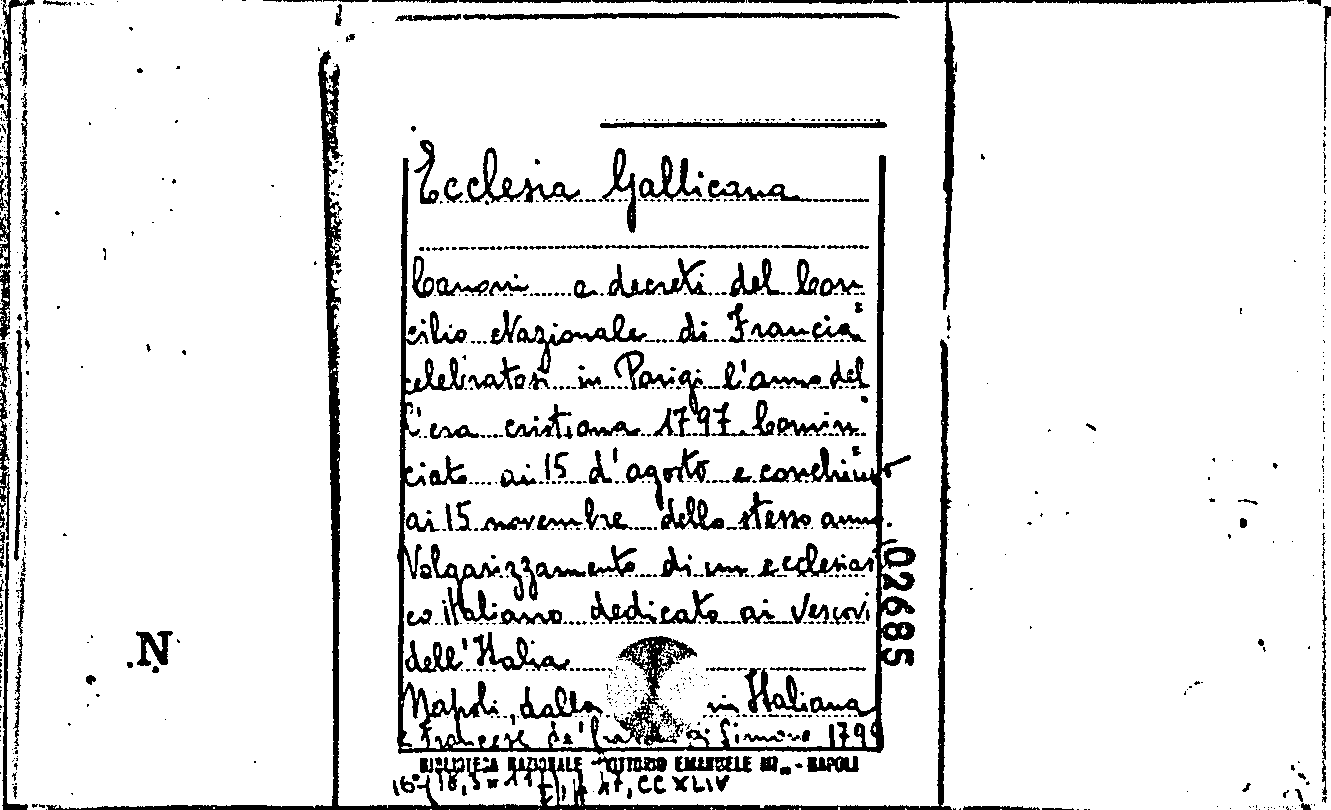 Ecclesia Gallicana
Canoni e decreti del Con
cilio Nazionale di Francia
celebratosi in Parigi l'anno del
l'era cristiana 1797. Comin
ciato ai 15 d'agosto e conchiuso
ai 15 novembre dello stesso anno.
Volgarizzamento di un ecclesiasti
co italiano dedicato ai Vescovi
dell'Italia
Napoli, dalla in Italiana
e Francese de' Simone 1799
BIBLIOTECA NAZIONALE "VITTORIO EMANUELE III" - NAPOLI
16° (18,5 x 11 17, CCXLIV
02685
N